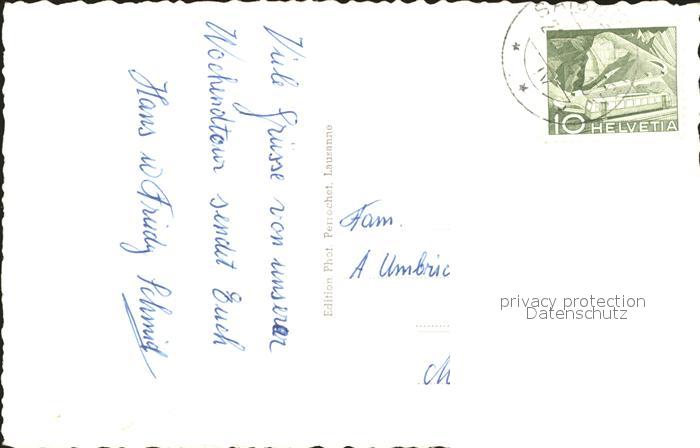 Viele Grüsse von unserer
Wochendtour sendet Euch
Hans u Friedy Schmid
Edition Phot. Perrochet. Lausanne
Fam.
A Umbric
10 HELVETIA
privacy protection
Datenschutz